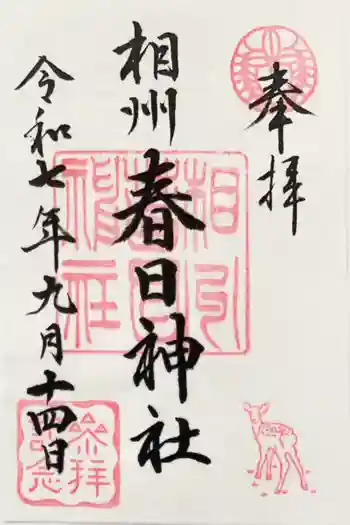 奉拝
相州春日神社
令和七年九月十四日
相州春日神社
参拝記念